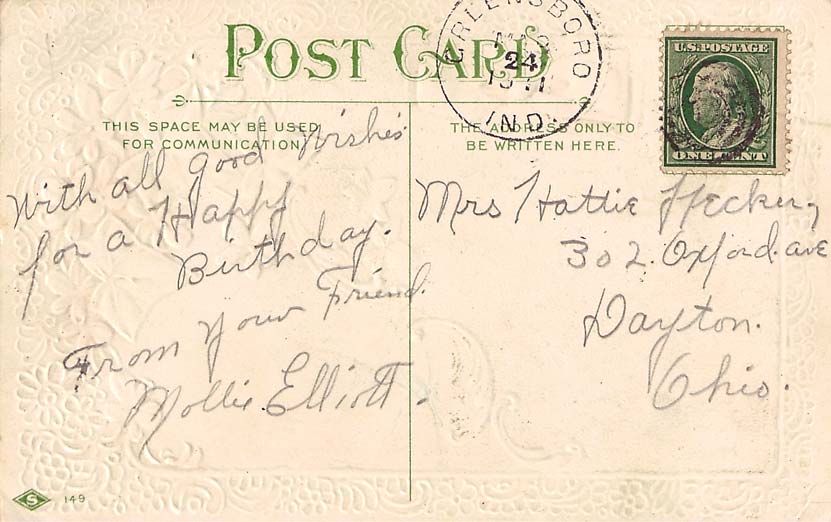 POST CARD
GREENSBORO
24
1911
IND.
U.S. POSTAGE
ONE CENT
THIS SPACE MAY BE USED
FOR COMMUNICATION
THE ADDRESS ONLY TO
BE WRITTEN HERE.
With all good Wishes
for a Happy
Birthday.
From your Friend.
Mollie Elliott.
Mrs Hattie Hecker,
302. Oxford. ave
Dayton.
Ohio.
S 149